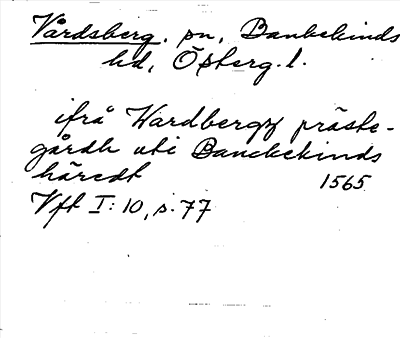 Vårdsberg. sn, Bankekinds
hd, Österg. l.
ifrå Wardbergz präste-
gårdh uti Banckekinds
häredt 1565
Vft I: 10, s. 77